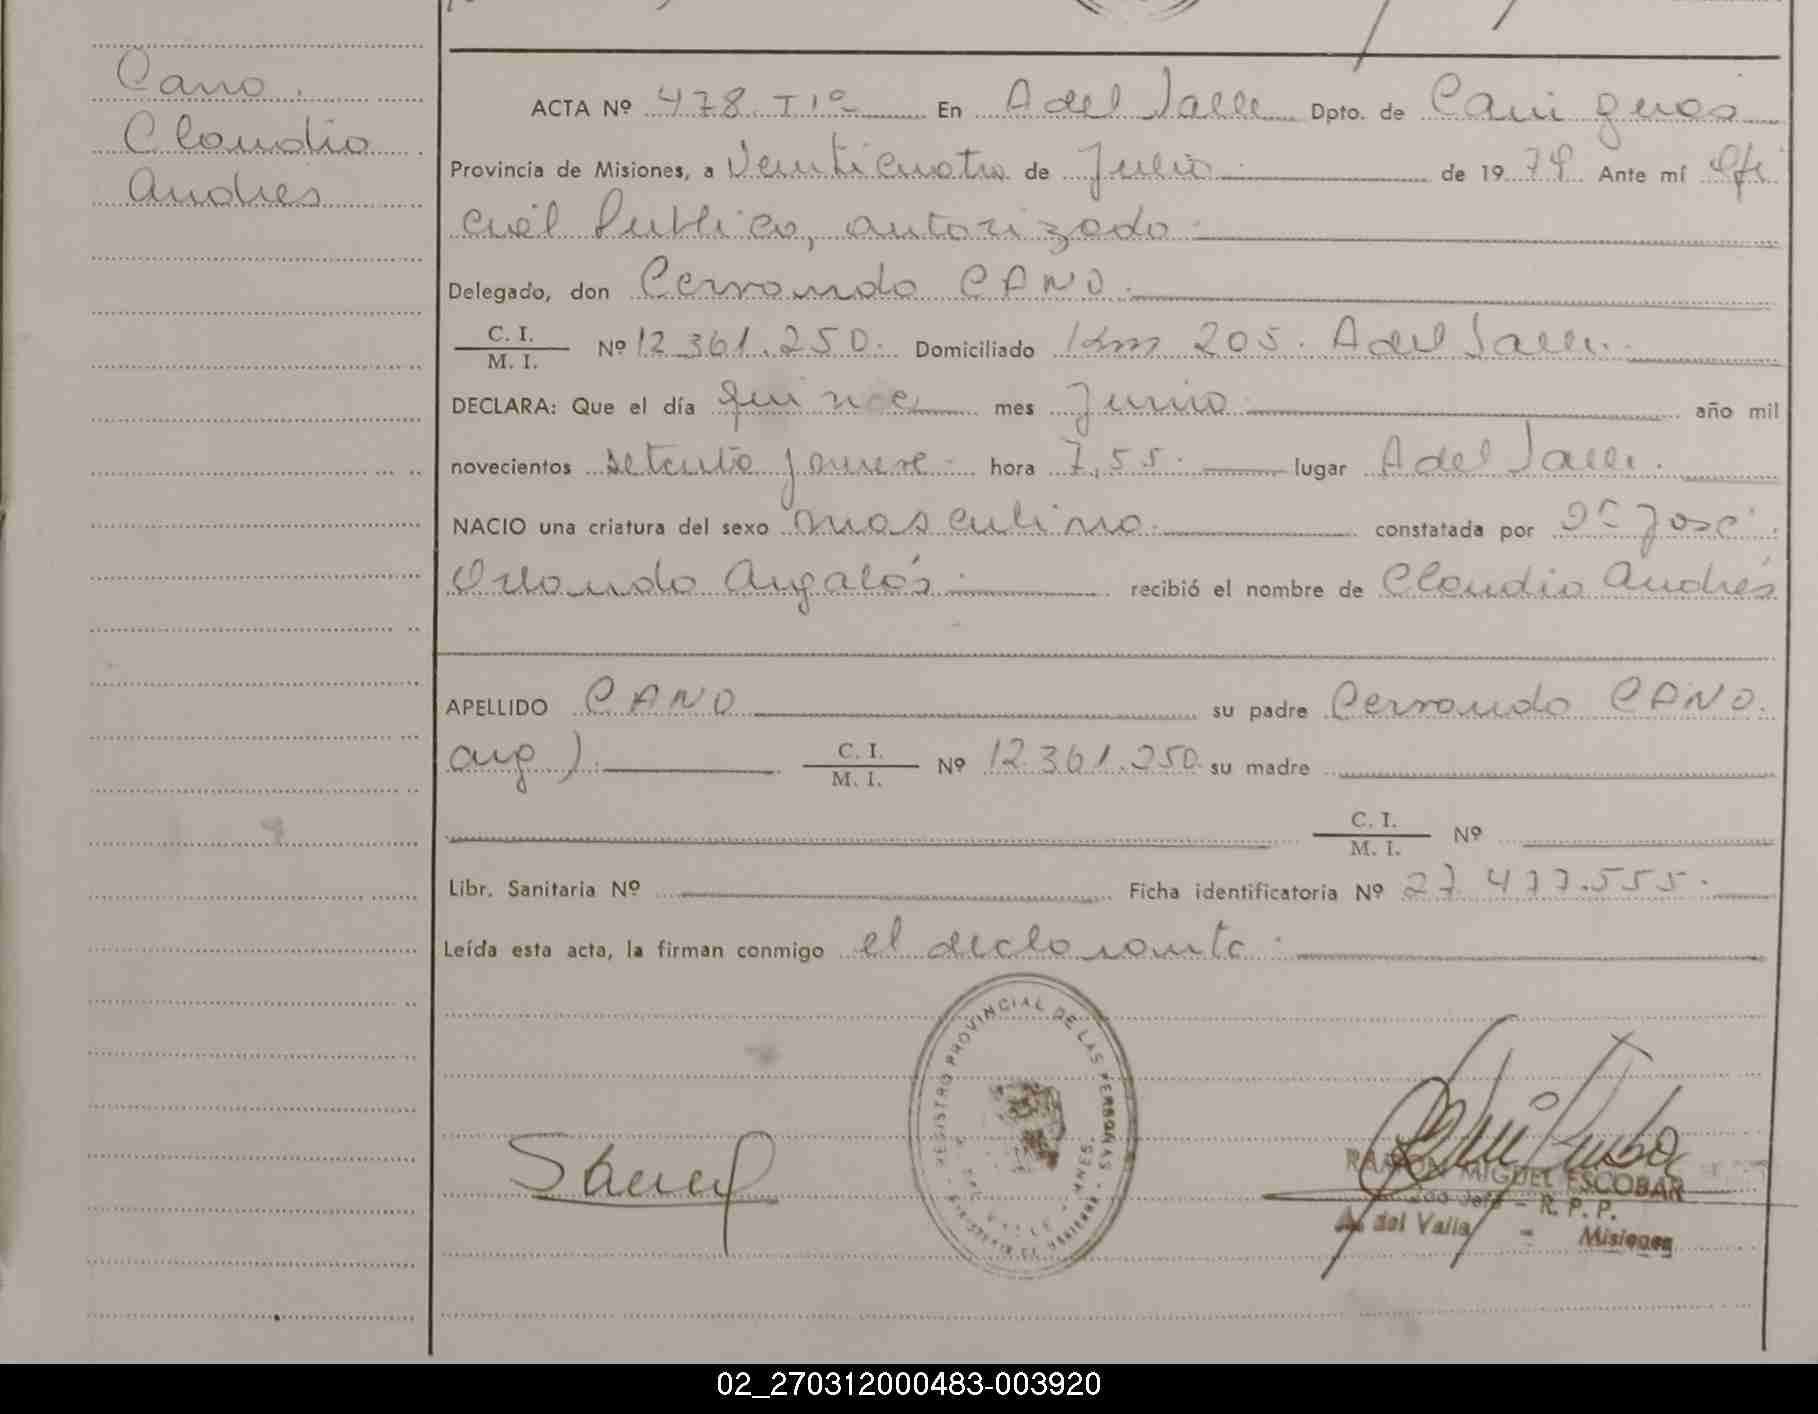 Cano.
Claudio
Andres
ACTA Nº 478. Tº 1º En A del Valle Dpto. de Cainguas
Provincia de Misiones, a Veinticuatro de Julio de 1979. Ante mí Ofi
cial Publico, autorizado
Delegado, don Cerrando CANO.
C. I.
M. I. Nº 12.361.250. Domiciliado Km 205. A del Valle.
DECLARA: Que el día quince mes Junio año mil
novecientos setenta y nueve hora 7,55. lugar A del Valle.
NACIO una criatura del sexo masculino. constatada por Dr José
Orlando Angalós. recibió el nombre de Claudio Andrés
APELLIDO CANO su padre Cerrando CANO.
arg). C. I.
M. I. Nº 12.361.250. su madre
C. I.
M. I. Nº
Libr. Sanitaria Nº Ficha identificatoria Nº 27.477.555.
Leída esta acta, la firman conmigo el declarante.
REGISTRO PROVINCIAL DE LAS PERSONAS
RAMON MIGUEL ESCOBAR
Jefe - R. P. P.
A. del Valle - Misiones
02_270312000483-003920